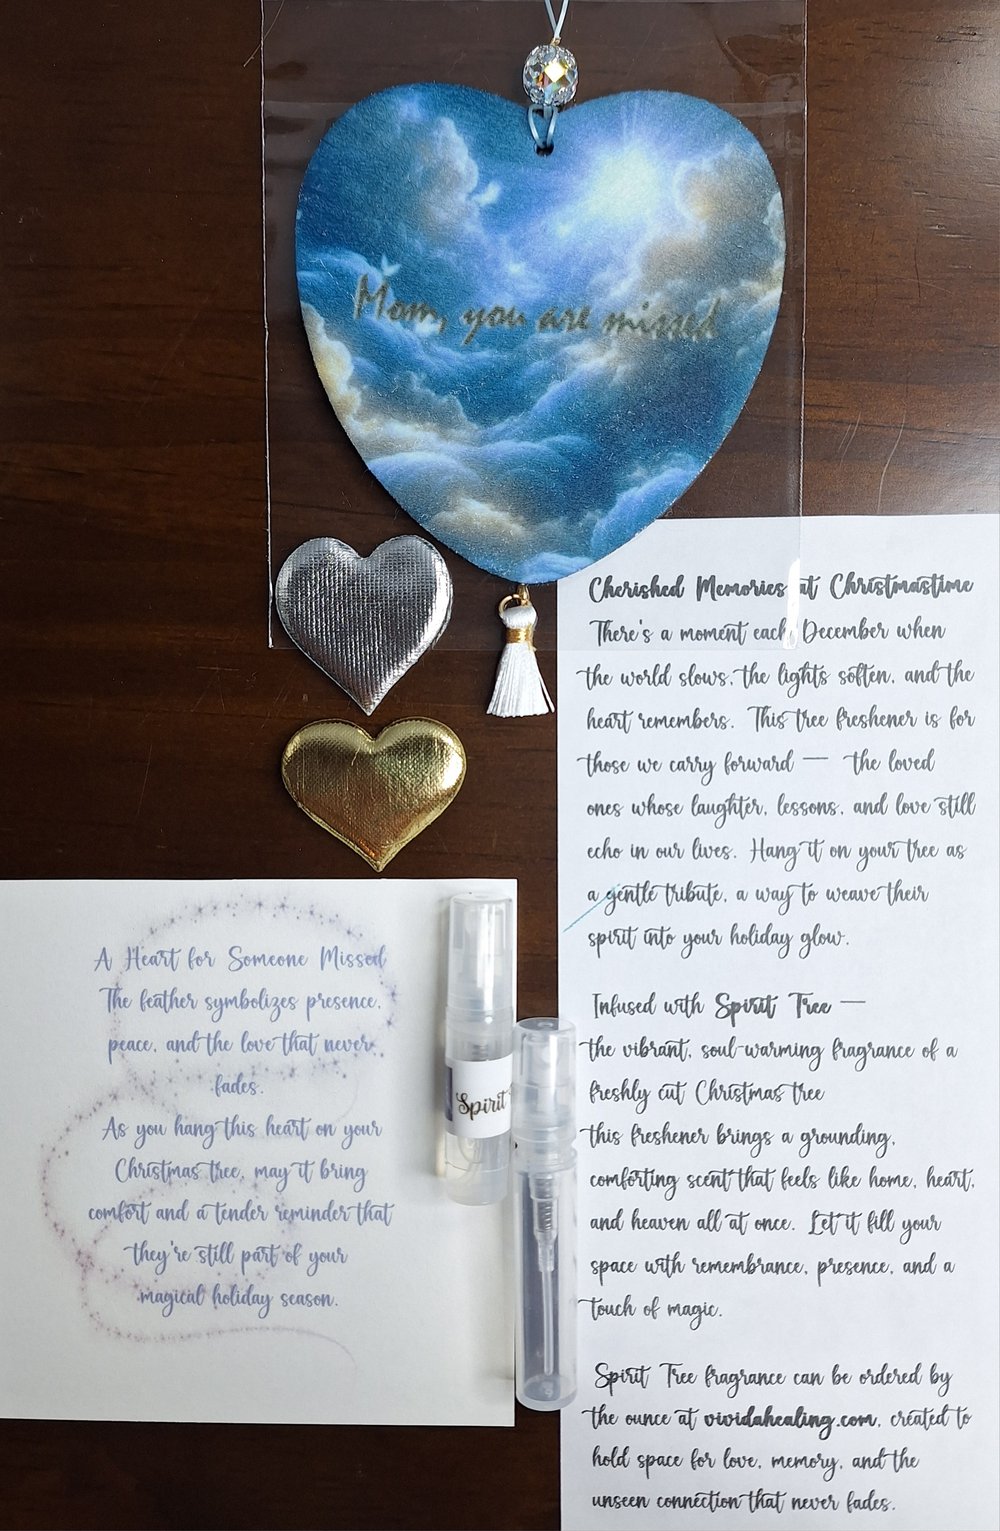 Mom, you are missed
Cherished Memories at Christmastime
There's a moment each December when
the world slows, the lights soften, and the
heart remembers. This tree freshener is for
those we carry forward — the loved
ones whose laughter, lessons, and love still
echo in our lives. Hang it on your tree as
a gentle tribute, a way to weave their
spirit into your holiday glow.
Infused with Spirit Tree —
the vibrant, soul-warming fragrance of a
freshly cut Christmas tree
this freshener brings a grounding,
comforting scent that feels like home, heart,
and heaven all at once. Let it fill your
space with remembrance, presence, and a
touch of magic.
Spirit Tree fragrance can be ordered by
the ounce at vividahealing.com, created to
hold space for love, memory, and the
unseen connection that never fades.
A Heart for Someone Missed
The feather symbolizes presence,
peace, and the love that never
fades.
As you hang this heart on your
Christmas tree, may it bring
comfort and a tender reminder that
they're still part of your
magical holiday season.
Spirit